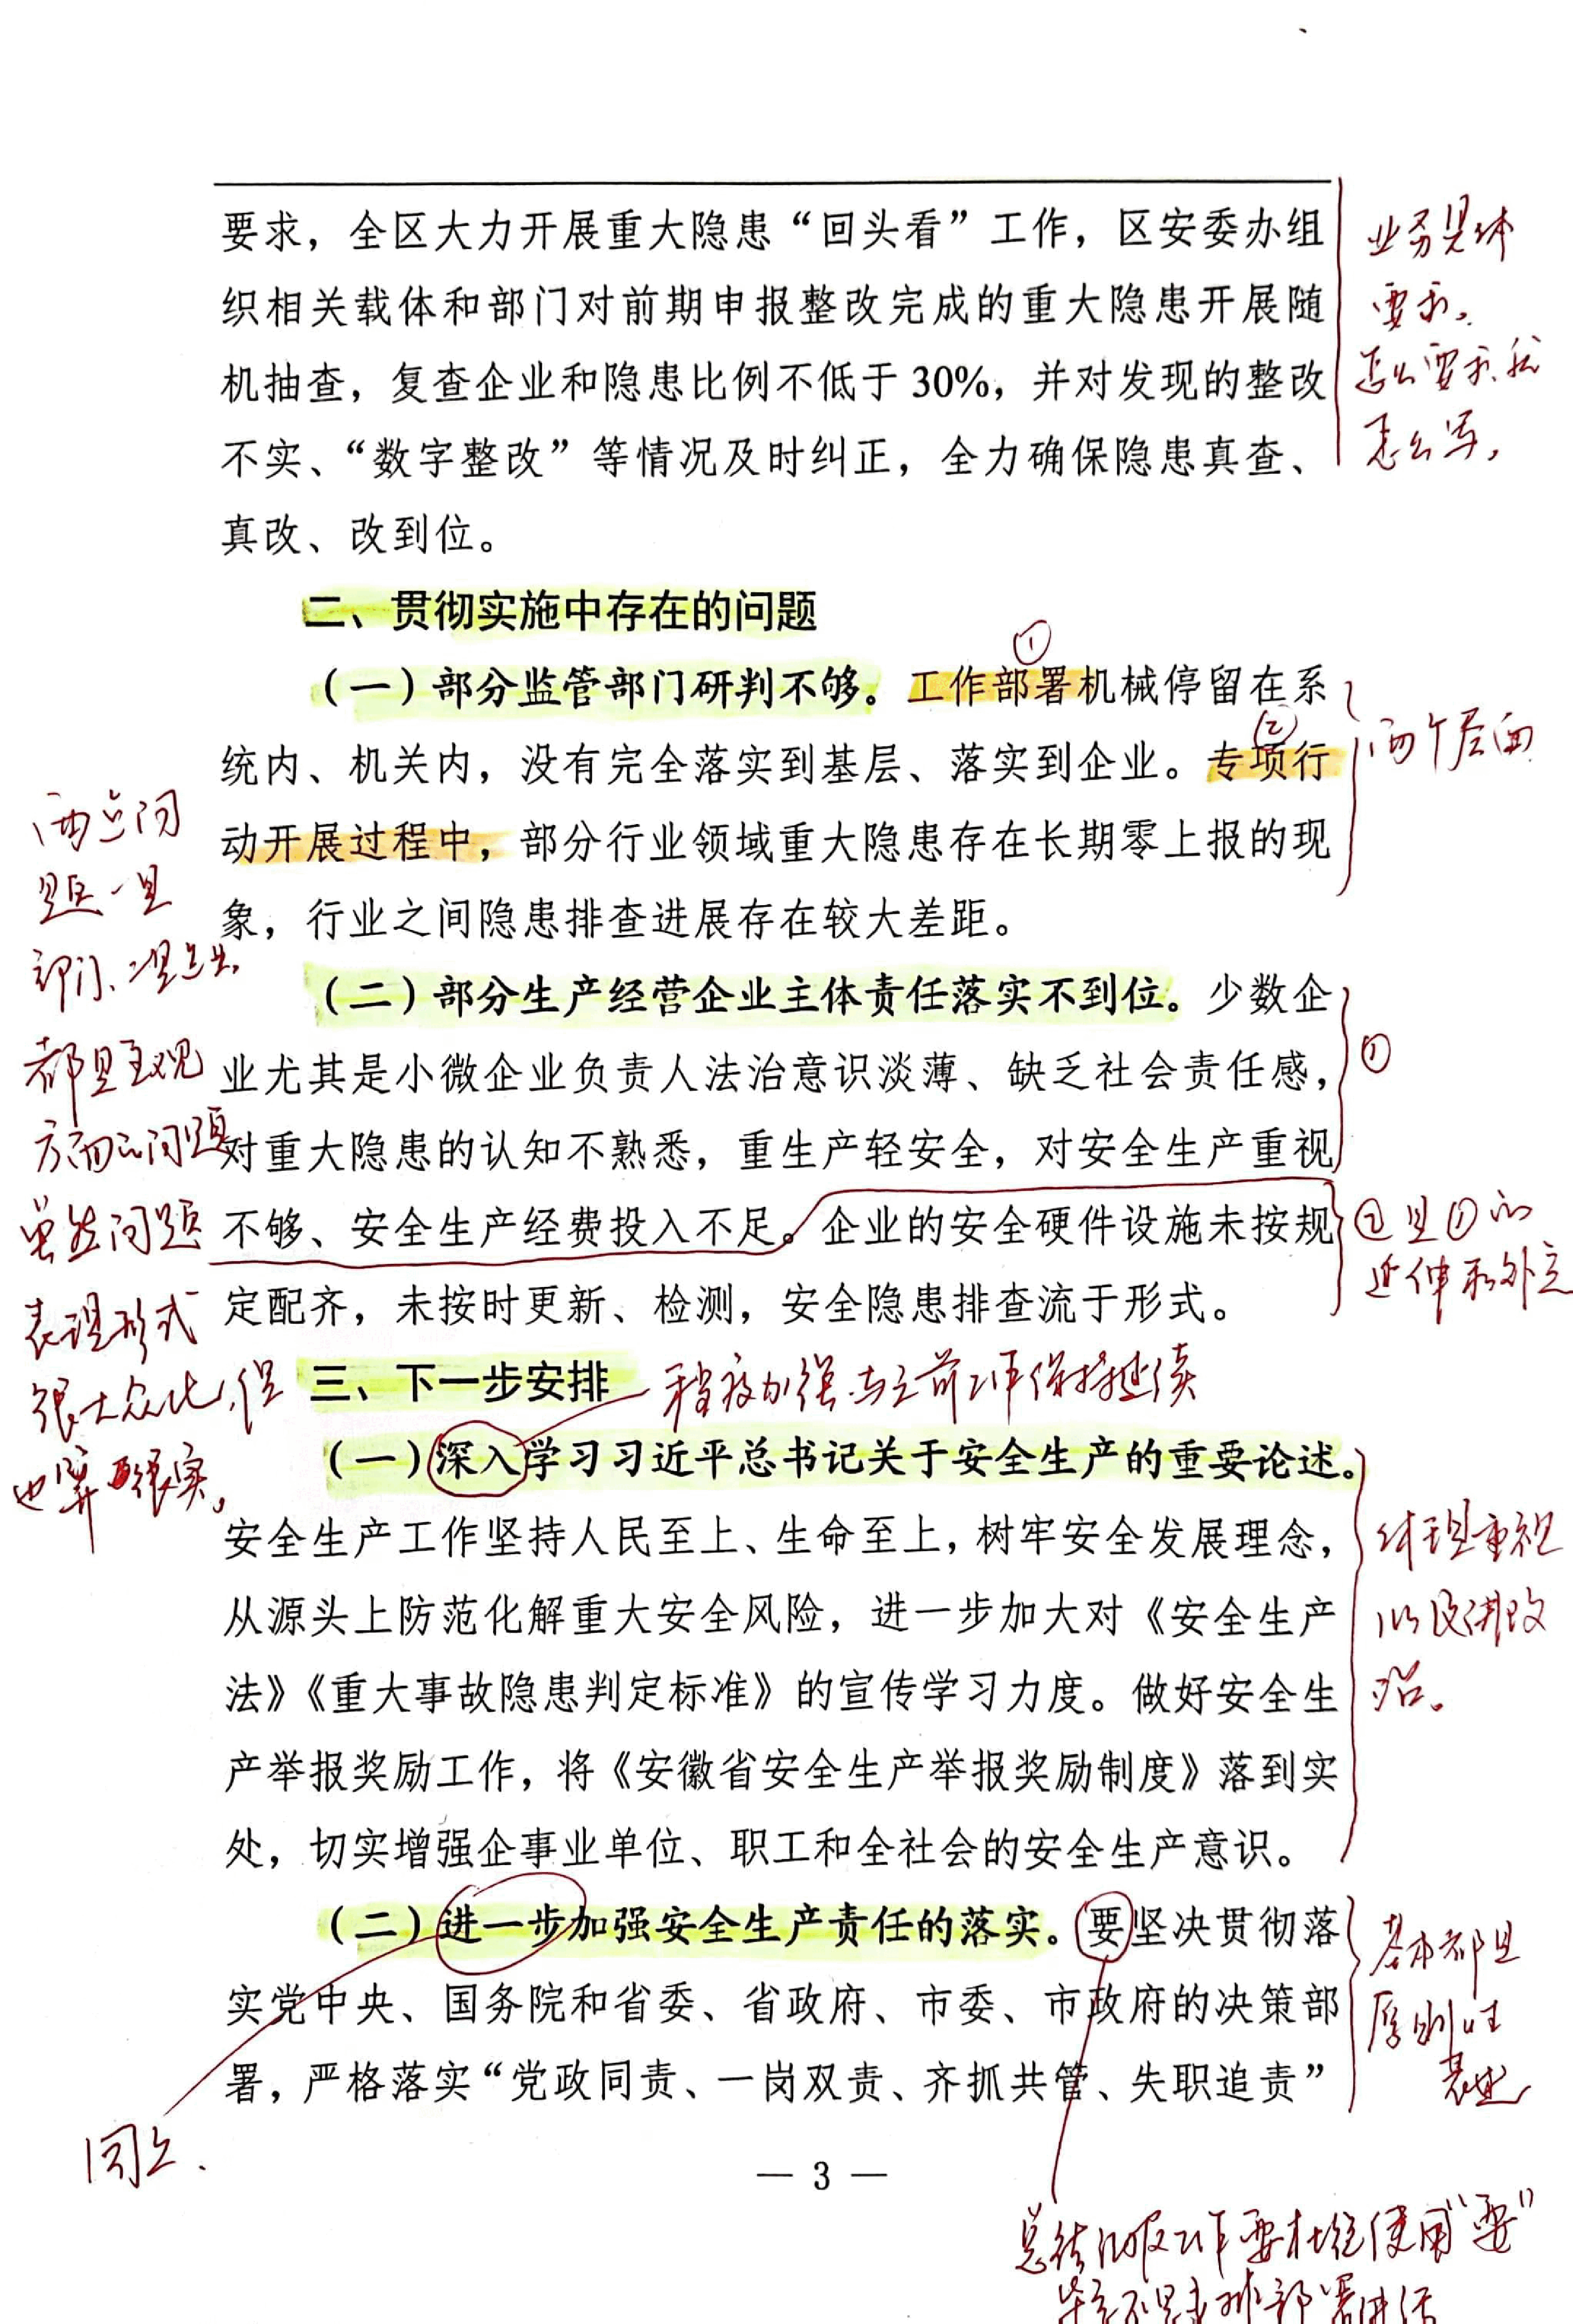 要求，全区大力开展重大隐患“回头看”工作，区安委办组
织相关载体和部门对前期申报整改完成的重大隐患开展随
机抽查，复查企业和隐患比例不低于 30%，并对发现的整改
不实、“数字整改”等情况及时纠正，全力确保隐患真查、
真改、改到位。
业务具体
要求。
怎么要求就
怎么写，
二、贯彻实施中存在的问题
①
（一）部分监管部门研判不够。工作部署机械停留在系
②
统内、机关内，没有完全落实到基层、落实到企业。专项行
动开展过程中，部分行业领域重大隐患存在长期零上报的现
象，行业之间隐患排查进展存在较大差距。
两个层面
（二）部分生产经营企业主体责任落实不到位。少数企
业尤其是小微企业负责人法治意识淡薄、缺乏社会责任感，
对重大隐患的认知不熟悉，重生产轻安全，对安全生产重视
不够、安全生产经费投入不足。企业的安全硬件设施未按规
定配齐，未按时更新、检测，安全隐患排查流于形式。
①
②是①的
延伸和外
两点问
题一是
部门、二是企业，
都是主观
方面的问题
虽然问题
表现形式
很大众化，但
也算很实。
三、下一步安排
程度加强与之前工作保持延续
（一）深入学习习近平总书记关于安全生产的重要论述。
安全生产工作坚持人民至上、生命至上，树牢安全发展理念，
从源头上防范化解重大安全风险，进一步加大对《安全生产
法》《重大事故隐患判定标准》的宣传学习力度。做好安全生
产举报奖励工作，将《安徽省安全生产举报奖励制度》落到实
处，切实增强企事业单位、职工和全社会的安全生产意识。
体现重视
以及讲政
治。
（二）进一步加强安全生产责任的落实。要坚决贯彻落
实党中央、国务院和省委、省政府、市委、市政府的决策部
署，严格落实“党政同责、一岗双责、齐抓共管、失职追责”
基本都是
原则性
表述
同上.
— 3 —
总结汇报工作要杜绝使用“要”
毕竟不是安排部署讲话